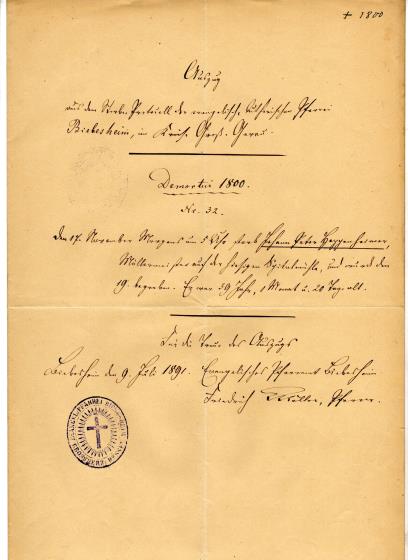 + 1800
Auszug
aus dem Sterbe-Protocoll der evangelisch-lutherischen Pfarrei
Biebesheim, im Kreise Groß-Gerau.
Demortui 1800.
Nr. 32.
Den 17. November Morgens um 5 Uhr starb Johann Peter Heppenheimer,
Müllermeister auf der hiesigen Spitalmühle, und wurde den
19. begraben. Er war 59 Jahr, 1 Monat u. 28 Tag alt.
Für die Treue des Auszugs
Biebesheim den 9. Juli 1891. Evangelisches Pfarramt Biebesheim
Friedrich Pfarrer.